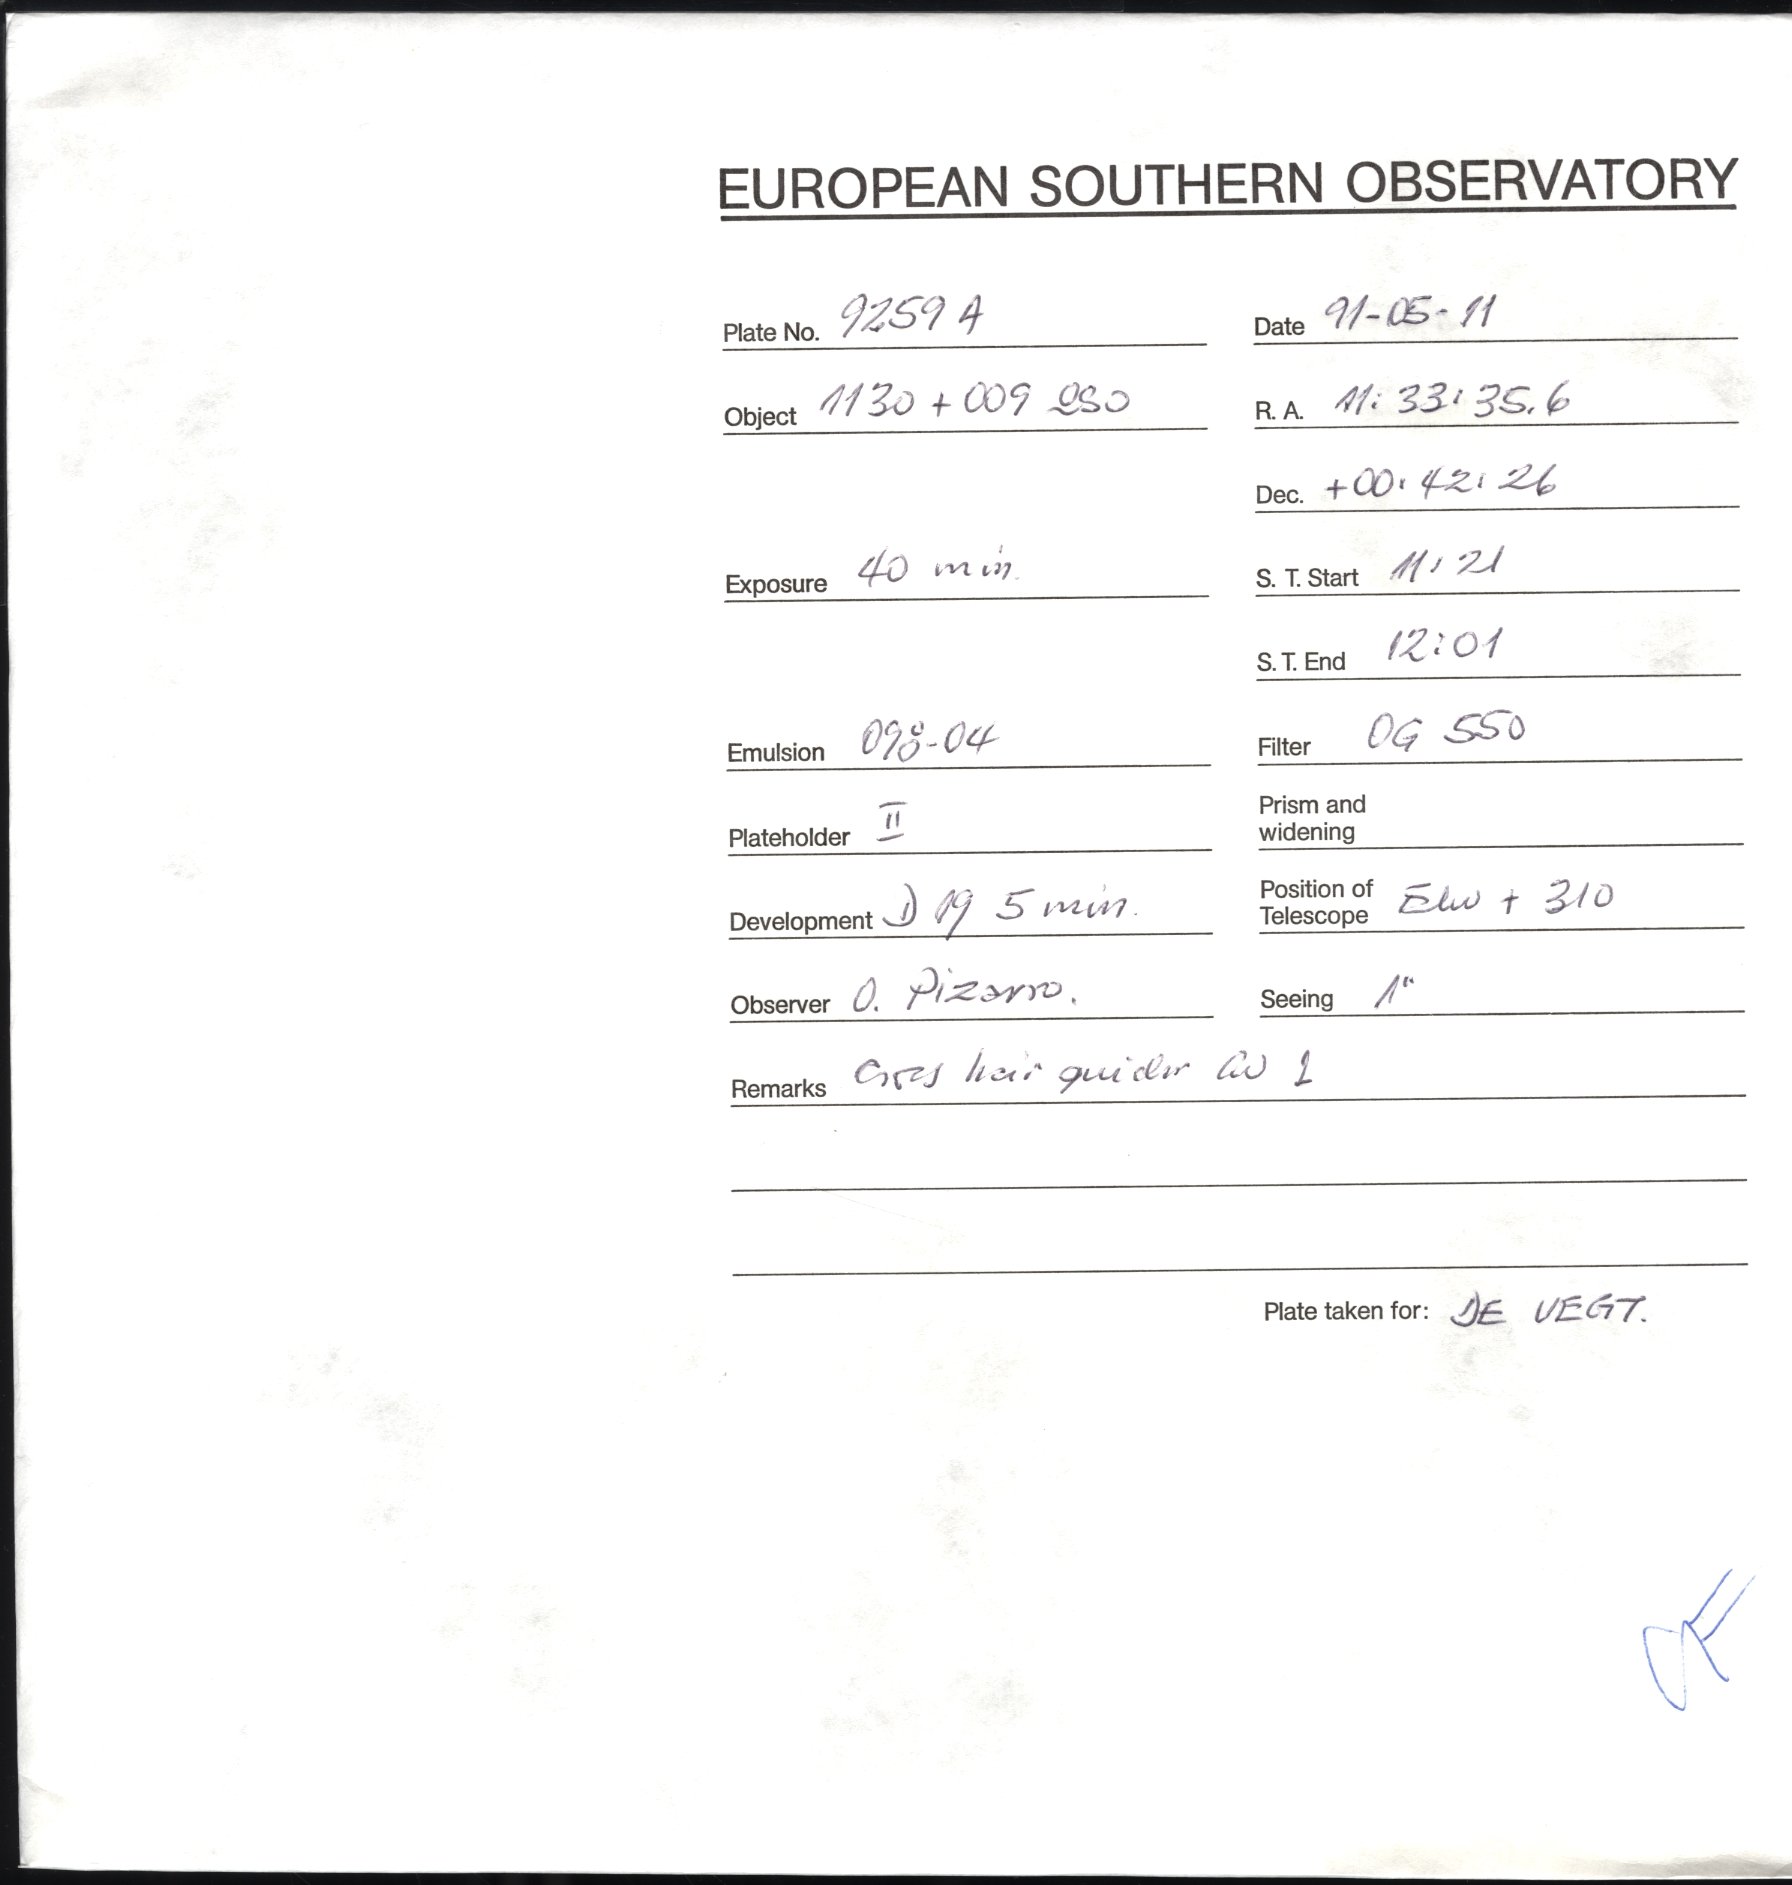 EUROPEAN SOUTHERN OBSERVATORY
Plate No. 9259 A
Date 91-05-11
Object 1130 + 009 QSO
R. A. 11: 33: 35.6
Dec. +00: 42: 26
Exposure 40 min.
S. T. Start 11: 21
S. T. End 12:01
Emulsion 098-04
Filter OG 550
Plateholder II
Prism and
widening
Development D 19 5 min.
Position of
Telescope + 310
Observer O. Pizarro.
Seeing 1"
Remarks hair guider
Plate taken for: DE VEGT.